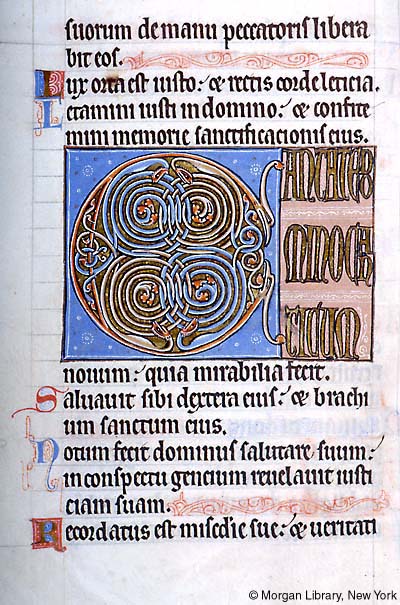 suorum de manu peccatoris libera
bit eos.
Lux orta est iusto: et rectis corde leticia.
Letamini iusti in domino: et confite
mini memorie sanctificacionis eius.
CANTATE D
OMINO CAN
TICUM
nouum: quia mirabilia fecit.
Saluauit sibi dextera eius: et brachi
um sanctum eius.
Notum fecit dominus salutare suum:
in conspectu gencium reuelauit iusti
ciam suam.
Recordatus est misedie sue: et ueritati
© Morgan Library, New York